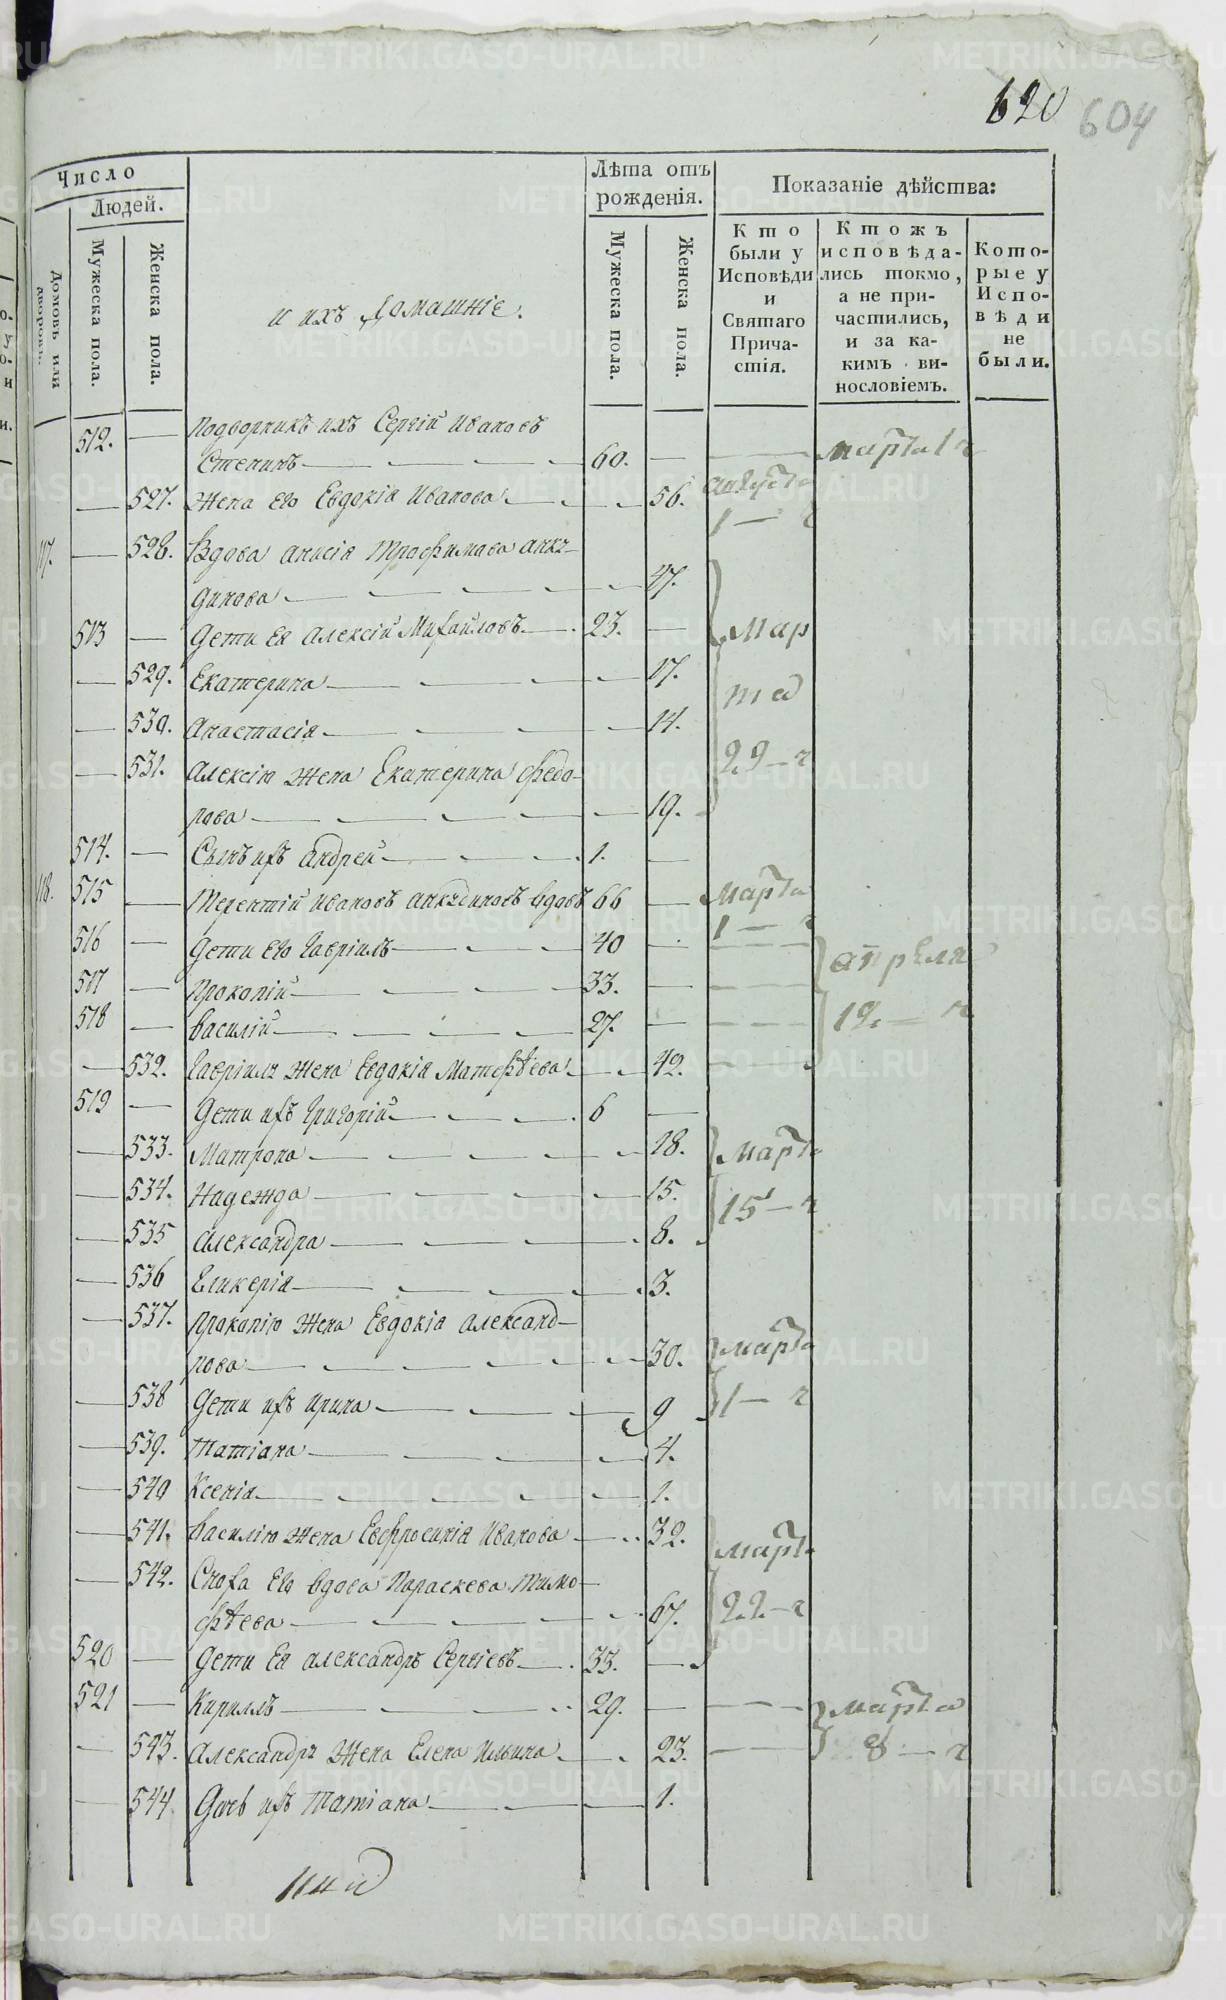 620 604
Число
Людей.
Домовъ или дворовъ.
Мужеска пола.
Женска пола.
и ихъ домашніе.
Лѣта отъ рожденія.
Мужеска пола.
Женска пола.
Показаніе дѣйства:
Кто были у Исповѣди и Святаго Причастія.
Ктожъ исповѣдались токмо, а не причастились, и за какимъ винословіемъ.
Которые у Исповѣди не были.
512. — Подворникъ ихъ Сергій Ивановъ
Степинъ — 60. — марта 1 ч
— 527. Жена его Евдокія Иванова — 56. августа
1 — ч
117. — 528. Вдова Анисія Трофимова Анку-
динова — 47.
513 — Дети ея Алексій Михайловъ — 23. — Мар
— 529. Екатерина — 17. та
— 530. Анастасія — 14.
— 531. Алексію жена Екатерина Федо- 29 — ч
рова — 19.
514. — Сынъ ихъ Андрей — 1. —
118. 515 — Терентій Ивановъ Анкудиновъ вдовъ 66 — Марта
1 — ч
516 — Дети его Гавріилъ — 40 — апреля
517 — Прокопій — 33. —
518 — Василій — 27. — 12 — ч
— 532. Гавріилу жена Евдокія Матфѣева — 42.
519 — Дети ихъ Григорій — 6 —
— 533. Матрона — 18. Марта
— 534. Надежда — 15. 15 — ч
— 535 Александра — 8.
— 536 Гликерія — 3.
— 537. Прокопію жена Евдокія Александ-
рова — 30. Марта
— 538 Дети ихъ Ирина — 9 1 — ч
— 539. Татіана — 4.
— 540 Ксенія — 1.
— 541. Василію жена Евфросинія Иванова — 32. Марта
— 542. Сноха его вдова Параскева Тимо-
фѣева — 67. 22 — ч
520 — Дети ея Александръ Сергіевъ — 33. —
521 — Кириллъ — 29. — марта
— 543. Александру жена Елена Ильина — 23. — 8 — ч
— 544. Дочь ихъ Татіана — 1.
METRIKI.GASO-URAL.RU